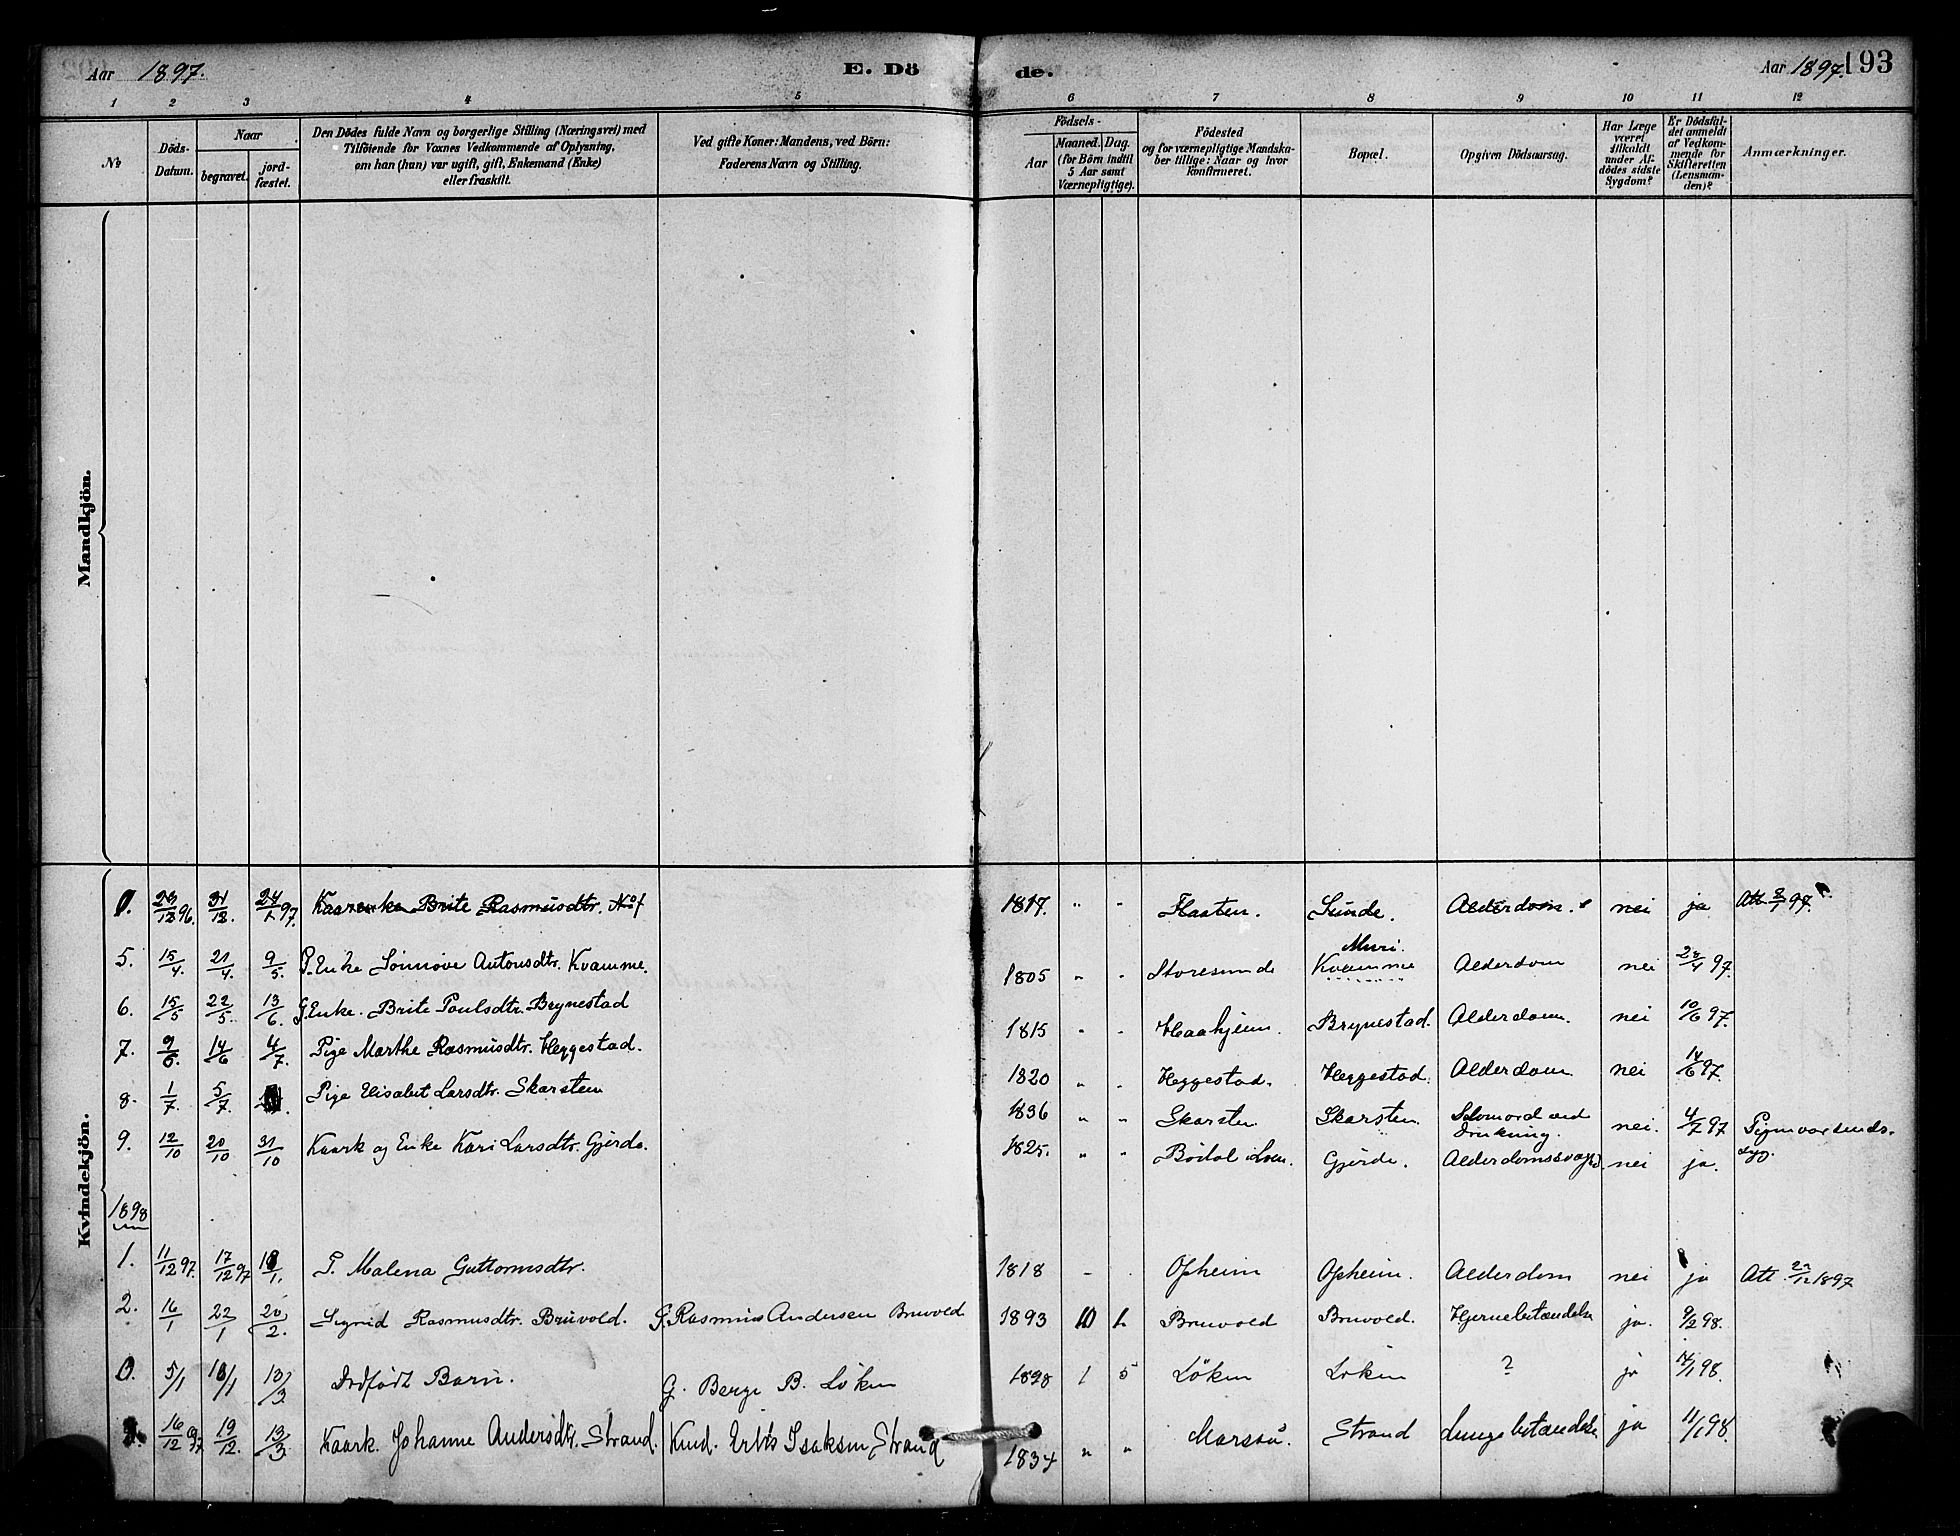 Aar 1897. E. Döde. Aar 1897. 193
1 2 3 4 5 6 7 8 9 10 11 12
No
Döds-Datum.
Naar
begravet.
jord-fæstet.
Den Dödes fulde Navn og borgerlige Stilling (Næringsvei) med
Tilföiende for Voxnes Vedkommende af Oplysning,
om han (hun) var ugift, gift, Enkemand (Enke)
eller fraskilt.
Ved gifte Koner: Mandens, ved Börn:
Faderens Navn og Stilling.
Födsels-
Aar
Maaned. Dag.
(for Börn indtil
5 Aar samt
Værnepligtige).
Födested
og for værnepligtige Mandska-
ber tillige: Naar og hvor
konfirmeret.
Bopæl.
Opgiven Dödsaarsag.
Har Læge
været
tilkaldt
under Af-
dödes sidste
Sygdom?
Er Dödsfal-
det anmeldt
af Vedkom-
mende for
Skifteretten
(Lensman-
den)?
Anmærkninger.
Mandkjön.
Kvindekjön.
23/12 96. 31/12. 24/1 97. Brite Rasmusdtr. 1817. " " Flaaten. Sunde. Alderdom. nei ja Att. 2/1 97.
5. 15/4. 21/4. 9/5. Enke Sönnöve Antonsdtr. Kvamme. 1805 " " Storesunde Muri. Kvamme Alderdom nei 23/4 97.
6. 15/5 22/5. 13/6. G. Enke. Brite Poulsdtr. Brynestad 1815 " " Haahjem. Brynestad. Alderdom. nei 10/6 97.
7. 9/6. 14/6 4/7 Pige Marthe Rasmusdtr. Heggestad. 1820 " " Heggestad. Heggestad. Alderdom nei 14/6 97.
8. 1/7. 5/7. Pige Elisabet Larsdtr. Skarsten 1836 " " Skarsten Skarsten. Selvmord ved Drukning. nei. 4/7 97
9. 12/10 20/10 31/10 Kaark og Enke Kari Larsdtr. Gjerde. 1825. " " Bödal Loen. Gjerde. Alderdomssvagh. nei ja.
1898
1. 11/12 97. 17/12 97 Malena Guttormsdtr. 1818 Opheim Opheim. Alderdom nei ja Att. 22/12 1897
2. 16/1 22/1 20/2. Sigrid Rasmusdtr. Bruvold. G. Rasmus Andersen Bruvold 1893 10 Bruvold Bruvold. Hjernebetændelse ja. 9/2 98.
5/1 13/3 Dödfödt Barn. G. Berge B. Löken 1898 1 5 Löken Löken ? ja 98.
16/12 97. 19/12. 13/3. Kaark. Johanne Andersdtr. Strand. Isaksen Strand 1834 " " Strand Lungebetændelse ja 11/1 98.